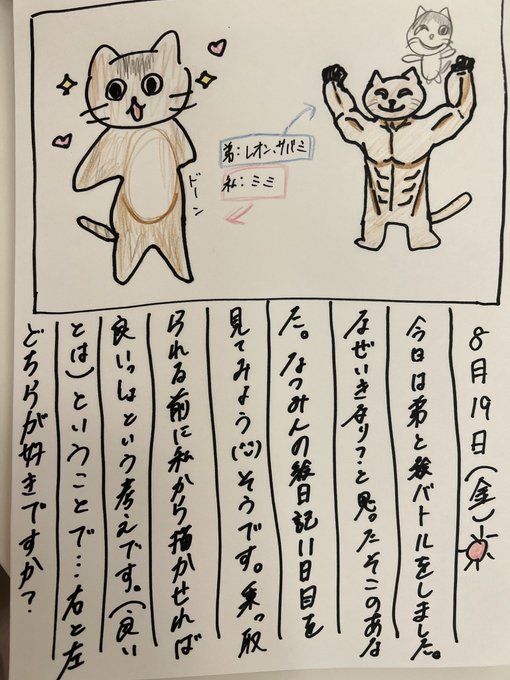 弟：レオン、サバミ
私：ミミ
ドーン
8月19日(金)
今日は弟と絵バトルをしました。
なぜいきなり？と思ったそこのあな
た。なつみんの絵日記11日目を
見てみよう(¨)そうです。乗っ取
られる前に私から描かせれば
良いっしょという考えです。(良い
とは)ということで…右と左
どちらが好きですか？